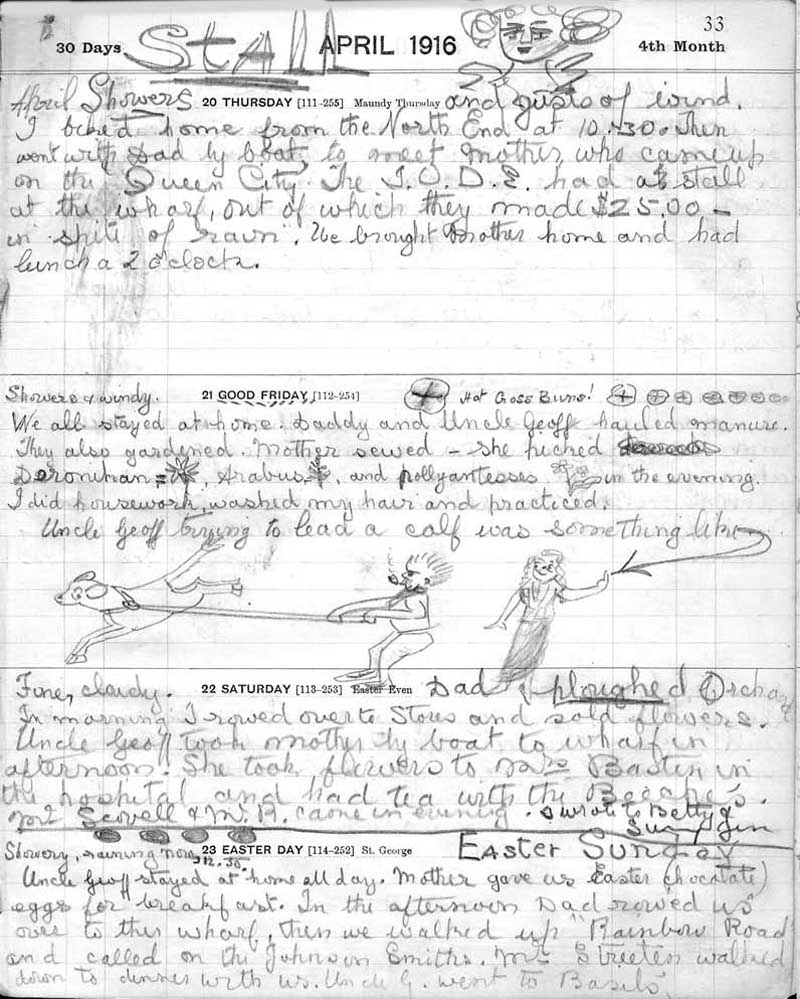 33
30 Days Stall APRIL 1916 4th Month
April Showers 20 THURSDAY [111-255] Maundy Thursday and gusts of wind.
I biked home from the North End at 10.30. Then
went with Dad by boat, to meet Mother, who came up
on the "Queen City". The I.O.D.E. had a stall
at the wharf, out of which they made $25.00 –
in "spite of rain". We brought Mother home and had
lunch a 2 o'clock.
Showers & windy. 21 GOOD FRIDAY [112-254] Hot Cross Buns!
We all stayed at home. Daddy and Uncle Geoff hauled manure.
They also gardened. Mother sewed – she picked
Doronihan = , Arabus , and pollyantesses in the evening.
I did housework, washed my hair and practiced.
Uncle Geoff trying to lead a calf was something like
Fine, cloudy. 22 SATURDAY [113-253] Easter Even Dad ploughed Orchard
In morning I rowed over to Stores and sold flowers.
Uncle Geoff took mother by boat to wharf in
afternoon. She took flowers to Mrs Bastin in
the hospital and had tea with the
Mr Scovell & M. B. came in evening. I wrote to Betty &
Showery, raining now 23 EASTER DAY [114-252] St. George Easter Sunday
12.30.
Uncle Geoff stayed at home all day. Mother gave us Easter (chocolate)
eggs for breakfast. In the afternoon Dad rowed us
over to the wharf, then we walked up "Rainbow Road"
and called on the Johnson Smiths. Mr Streeten walked
down to dinner with us. Uncle G. went to Basils.